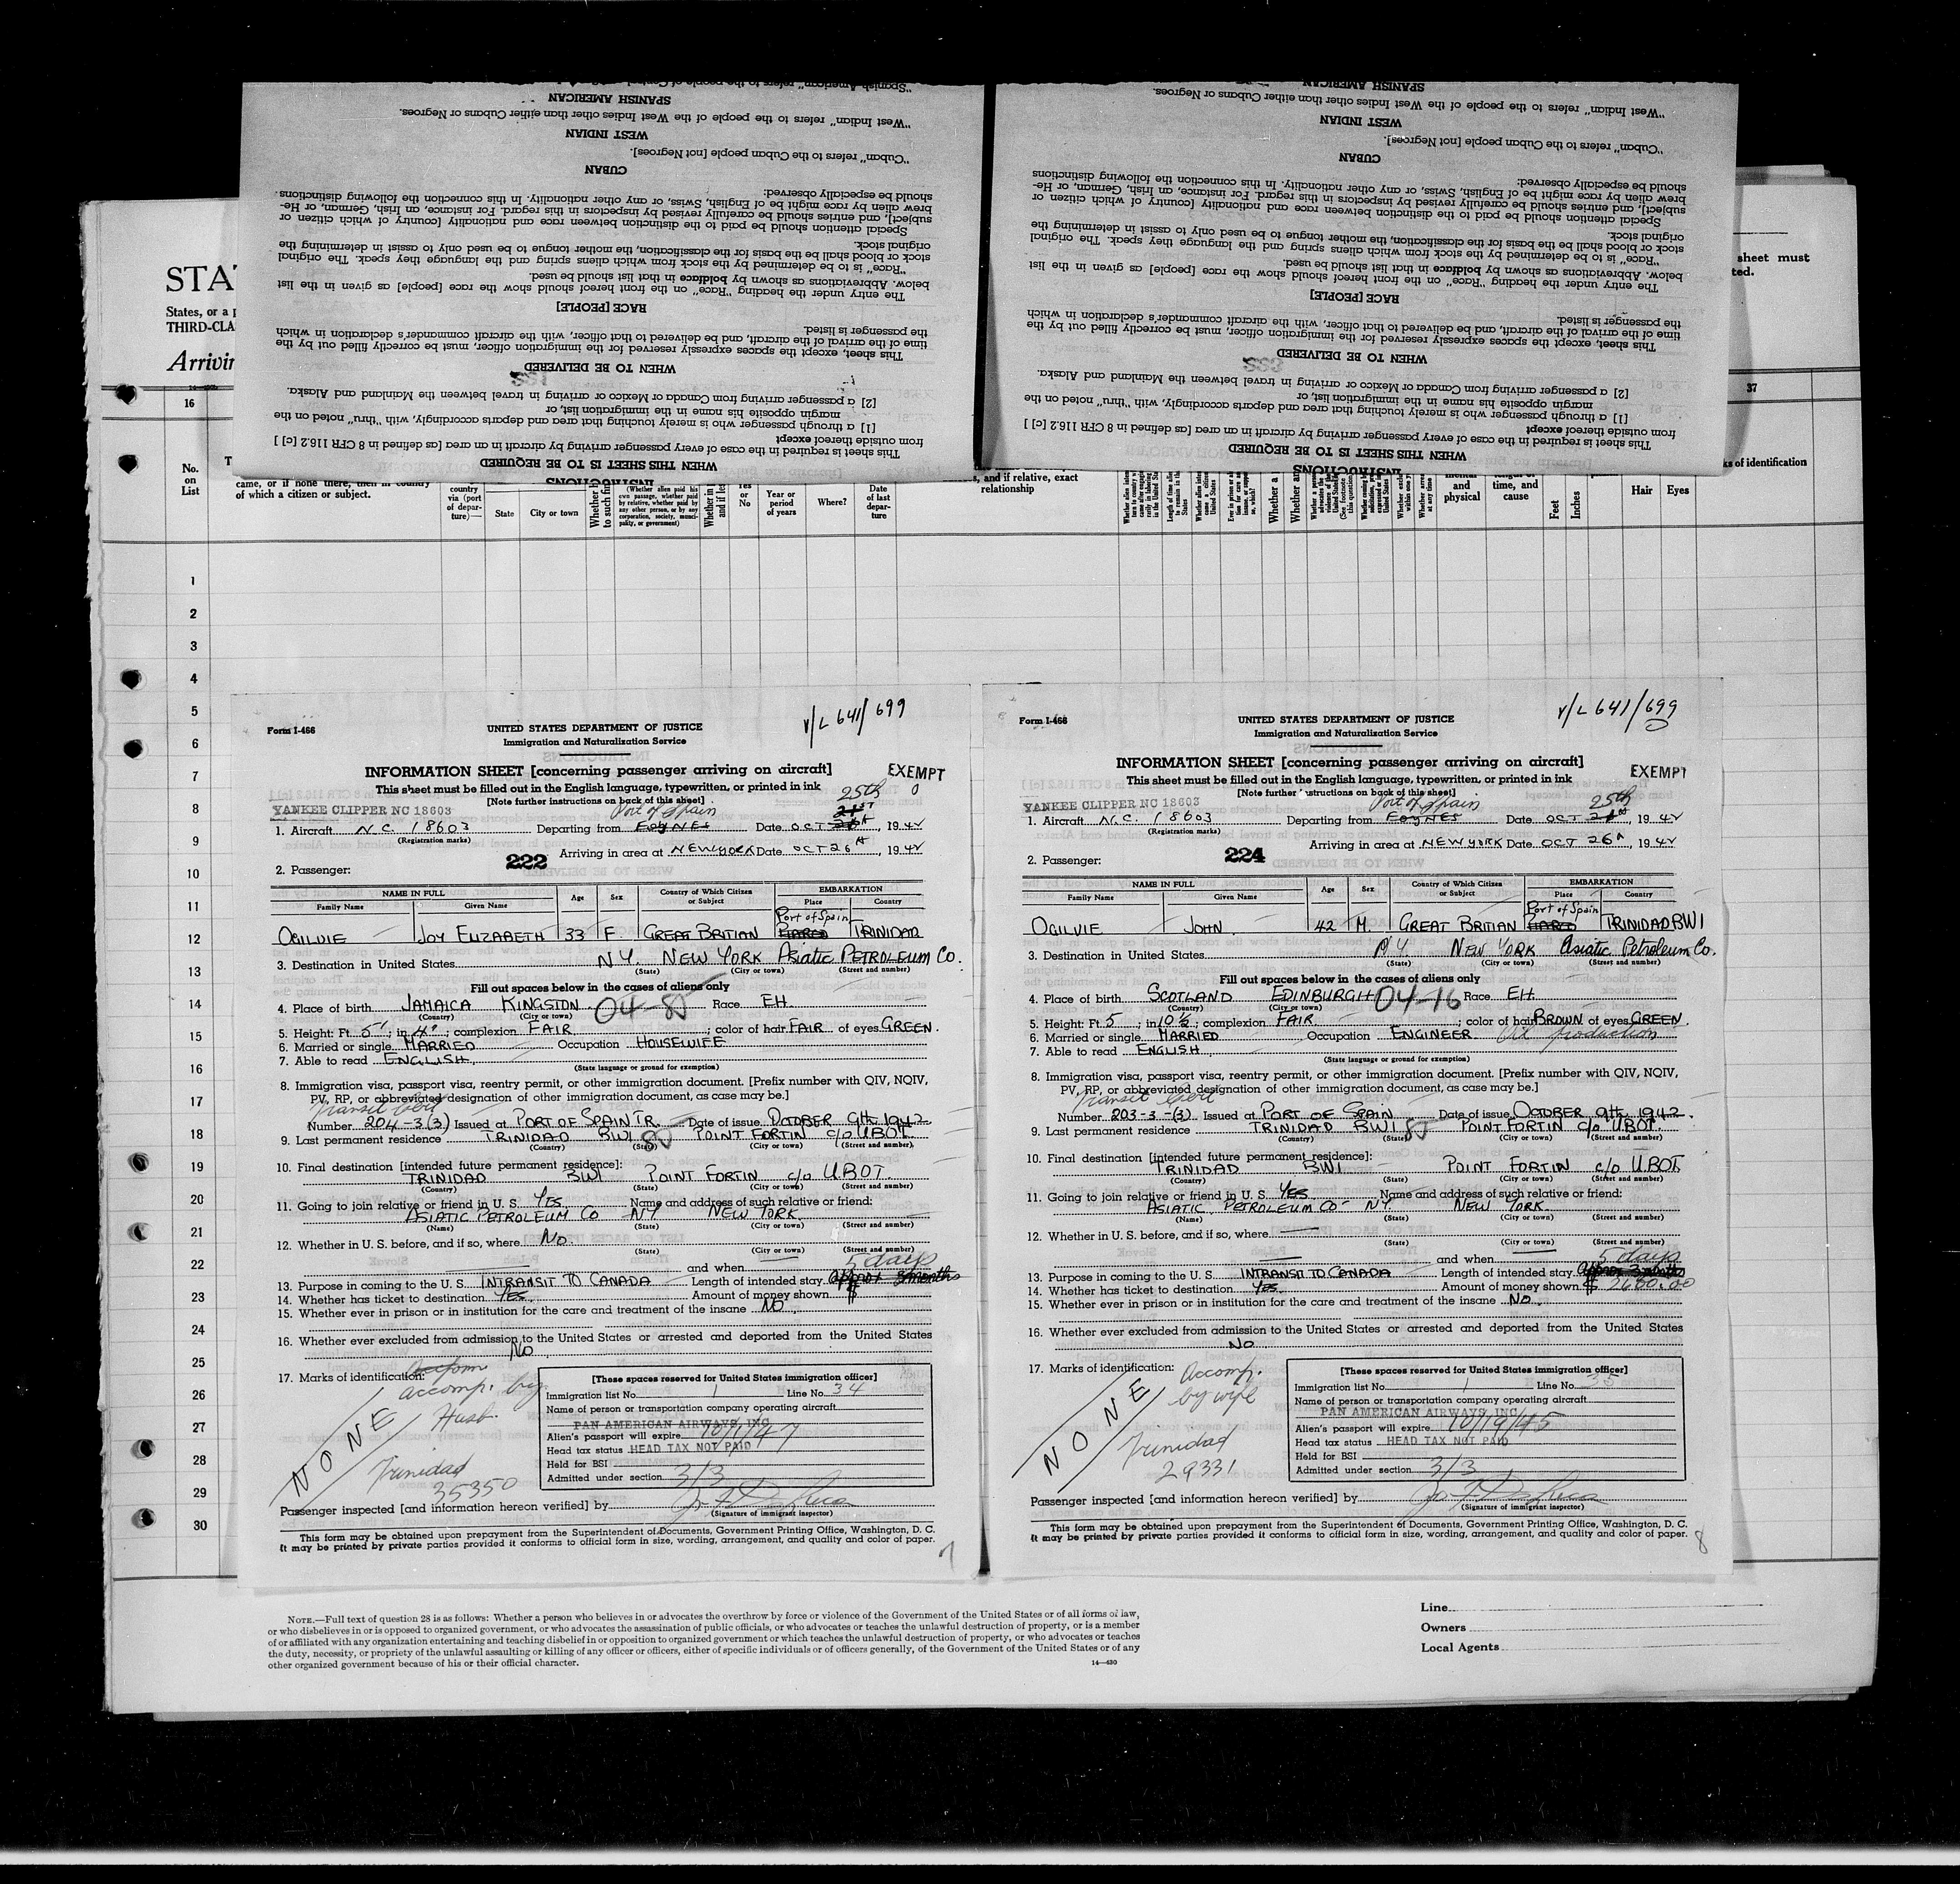 "Spanish American" refers to the people of Central
SPANISH AMERICAN
"West Indian" refers to the people of the West Indies other than either Cubans or Negroes.
WEST INDIAN
"Cuban" refers to the Cuban people [not Negroes].
CUBAN
should be especially observed:
brew alien by race might be of English, Swiss, or any other nationality. In this connection the following distinctions
subject], and entries should be carefully revised by inspectors in this regard. For instance, an Irish, German, or He-
Special attention should be paid to the distinction between race and nationality [country of which citizen or
original stock.
stock or blood shall be the basis for the classification, the mother tongue to be used only to assist in determining the
"Race" is to be determined by the stock from which aliens spring and the language they speak. The original
below. Abbreviations as shown by boldface in that list should be used.
The entry under the heading "Race" on the front hereof should show the race [people] as given in the list
RACE [PEOPLE]
the passenger is listed.
time of the arrival of the aircraft, and be delivered to that officer, with the aircraft commander's declaration in which
This sheet, except the spaces expressly reserved for the immigration officer, must be correctly filled out by the
WHEN TO BE DELIVERED
[2] a passenger arriving from Canada or Mexico or arriving in travel between the Mainland and Alaska.
margin opposite his name in the immigration list, or
[1] a through passenger who is merely touching that area and departs accordingly, with "thru" noted on the
from outside thereof except
This sheet is required in the case of every passenger arriving by aircraft in an area [as defined in 8 CFR 116.2 [c] ]
WHEN THIS SHEET IS TO BE REQUIRED
INSTRUCTIONS
SPANISH AMERICAN
"West Indian" refers to the people of the West Indies other than either Cubans or Negroes.
WEST INDIAN
"Cuban" refers to the Cuban people [not Negroes].
CUBAN
should be especially observed:
brew alien by race might be of English, Swiss, or any other nationality. In this connection the following distinctions
subject], and entries should be carefully revised by inspectors in this regard. For instance, an Irish, German, or He-
Special attention should be paid to the distinction between race and nationality [country of which citizen or
original stock.
stock or blood shall be the basis for the classification, the mother tongue to be used only to assist in determining the
"Race" is to be determined by the stock from which aliens spring and the language they speak. The original
below. Abbreviations as shown by boldface in that list should be used.
The entry under the heading "Race" on the front hereof should show the race [people] as given in the list
RACE [PEOPLE]
the passenger is listed.
time of the arrival of the aircraft, and be delivered to that officer, with the aircraft commander's declaration in which
This sheet, except the spaces expressly reserved for the immigration officer, must be correctly filled out by the
WHEN TO BE DELIVERED
[2] a passenger arriving from Canada or Mexico or arriving in travel between the Mainland and Alaska.
margin opposite his name in the immigration list, or
[1] a through passenger who is merely touching that area and departs accordingly, with "thru" noted on the
from outside thereof except
This sheet is required in the case of every passenger arriving by aircraft in an area [as defined in 8 CFR 116.2 [c] ]
WHEN THIS SHEET IS TO BE REQUIRED
INSTRUCTIONS
STA
States, or a p
THIRD-CLA
Arrivin
sheet must
ted.
16
37
No.
on
List
came, or if none there, then in country
of which a citizen or subject.
country
via (port
of depar-
ture)—
State
City or town
(Whether alien paid his
own passage, whether paid
by relative, whether paid by
any other person, or by any
corporation, society, munici-
pality, or government)
Yes
or
No
Year or
period
of years
Where?
Date
of last
depar-
ture
s, and if relative, exact
relationship
Whether a
mental
and
physical
time, and
cause
Feet
Inches
Hair
Eyes
ks of identification
1
2
3
4
5
6
7
8
9
10
11
12
13
14
15
16
17
18
19
20
21
22
23
24
25
26
27
28
29
30
V/L 641/699
Form I-466
UNITED STATES DEPARTMENT OF JUSTICE
Immigration and Naturalization Service
INFORMATION SHEET [concerning passenger arriving on aircraft]
EXEMPT
This sheet must be filled out in the English language, typewritten, or printed in ink
[Note further instructions on back of this sheet]
25th
YANKEE CLIPPER NC 18603
Port of Spain
1. Aircraft N.C. 18603 Departing from FOYNES Date OCT , 1942
(Registration marks)
Arriving in area at NEW YORK Date OCT 26th, 1942
222
2. Passenger:
NAME IN FULL
Age
Sex
Country of Which Citizen
or Subject
EMBARKATION
Family Name
Given Name
Place
Country
Port of Spain
OGILVIE JOY ELIZABETH 33 F. GREAT BRITIAN PIARCO TRINIDAD
3. Destination in United States N.Y. NEW YORK Asiatic PETROLEUM Co.
(State) (City or town) (Street and number)
Fill out spaces below in the cases of aliens only
4. Place of birth JAMAICA KINGSTON 04-85 Race EH
(Country) (City or town)
5. Height: Ft. 5' ; in 4" ; complexion FAIR ; color of hair FAIR of eyes GREEN.
6. Married or single MARRIED Occupation HOUSEWIFE
7. Able to read ENGLISH.
(State language or ground for exemption)
8. Immigration visa, passport visa, reentry permit, or other immigration document. [Prefix number with QIV, NQIV,
PV, RP, or abbreviated designation of other immigration document, as case may be.]
Transit Cert
Number 204-3(3) Issued at PORT OF SPAIN TR. Date of issue OCTOBER 9th 1942
9. Last permanent residence TRINIDAD BWI 85 POINT FORTIN c/o U.B.O.T.
(Country) (State) (City or town) (Street and number)
10. Final destination [intended future permanent residence]:
TRINIDAD BWI POINT FORTIN c/o U.B.O.T.
(Country) (State) (City or town) (Street and number)
11. Going to join relative or friend in U. S. YES Name and address of such relative or friend:
ASIATIC PETROLEUM Co N.Y. NEW YORK
(Name) (State) (City or town) (Street and number)
12. Whether in U. S. before, and if so, where No.
(State) (City or town) (Street and number)
and when
5 days
13. Purpose in coming to the U. S. INTRANSIT TO CANADA Length of intended stay approx 3 months
14. Whether has ticket to destination YES. Amount of money shown $
15. Whether ever in prison or in institution for the care and treatment of the insane NO.
16. Whether ever excluded from admission to the United States or arrested and deported from the United States
No
17. Marks of identification:
NONE
accomp. by
Husb.
Trinidad
35350
[These spaces reserved for United States immigration officer]
Immigration list No. 1 Line No. 34
Name of person or transportation company operating aircraft
PAN AMERICAN AIRWAYS, INC.
Alien's passport will expire 10/1/47
Head tax status HEAD TAX NOT PAID
Held for BSI
Admitted under section 3/3
Passenger inspected [and information hereon verified] by
(Signature of immigrant inspector)
This form may be obtained upon prepayment from the Superintendent of Documents, Government Printing Office, Washington, D. C.
It may be printed by private parties provided it conforms to official form in size, wording, arrangement, and quality and color of paper.
7
V/L 641/699
Form I-466
UNITED STATES DEPARTMENT OF JUSTICE
Immigration and Naturalization Service
INFORMATION SHEET [concerning passenger arriving on aircraft]
EXEMPT
This sheet must be filled out in the English language, typewritten, or printed in ink
[Note further instructions on back of this sheet]
25th
YANKEE CLIPPER NC 18603
Port of Spain
1. Aircraft N.C. 18603 Departing from FOYNES Date OCT , 1942
(Registration marks)
Arriving in area at NEW YORK Date OCT 26th, 1942
224
2. Passenger:
NAME IN FULL
Age
Sex
Country of Which Citizen
or Subject
EMBARKATION
Family Name
Given Name
Place
Country
Port of Spain
OGILVIE JOHN. 42 M. GREAT BRITIAN PIARCO TRINIDAD BWI
3. Destination in United States N.Y. NEW YORK Asiatic Petroleum Co.
(State) (City or town) (Street and number)
Fill out spaces below in the cases of aliens only
4. Place of birth SCOTLAND EDINBURGH 04-16 Race EH.
(Country) (City or town)
5. Height: Ft. 5 ; in 10½ ; complexion FAIR ; color of hair BROWN of eyes GREEN.
6. Married or single MARRIED Occupation ENGINEER Oil Production
7. Able to read ENGLISH.
(State language or ground for exemption)
8. Immigration visa, passport visa, reentry permit, or other immigration document. [Prefix number with QIV, NQIV,
PV, RP, or abbreviated designation of other immigration document, as case may be.]
Transit Cert
Number 203-3-(3) Issued at PORT OF SPAIN Date of issue OCTOBER 9th, 1942.
9. Last permanent residence TRINIDAD BWI 85 POINT FORTIN c/o UBOT
(Country) (State) (City or town) (Street and number)
10. Final destination [intended future permanent residence]:
TRINIDAD BWI POINT FORTIN c/o U.B.O.T.
(Country) (State) (City or town) (Street and number)
11. Going to join relative or friend in U. S. YES Name and address of such relative or friend:
ASIATIC PETROLEUM CO N.Y. NEW YORK.
(Name) (State) (City or town) (Street and number)
12. Whether in U. S. before, and if so, where
(State) (City or town) (Street and number)
and when
5 days
13. Purpose in coming to the U. S. INTRANSIT TO CANADA Length of intended stay approx 3 months
14. Whether has ticket to destination YES. Amount of money shown $ 2600.00
15. Whether ever in prison or in institution for the care and treatment of the insane NO.
16. Whether ever excluded from admission to the United States or arrested and deported from the United States
No
17. Marks of identification:
NONE
Accomp.
by wife
Trinidad
29331
[These spaces reserved for United States immigration officer]
Immigration list No. 1 Line No. 35
Name of person or transportation company operating aircraft
PAN AMERICAN AIRWAYS, INC.
Alien's passport will expire 10/19/45
Head tax status HEAD TAX NOT PAID
Held for BSI
Admitted under section 3/3
Passenger inspected [and information hereon verified] by
(Signature of immigrant inspector)
This form may be obtained upon prepayment from the Superintendent of Documents, Government Printing Office, Washington, D. C.
It may be printed by private parties provided it conforms to official form in size, wording, arrangement, and quality and color of paper.
8
NOTE.—Full text of question 28 is as follows: Whether a person who believes in or advocates the overthrow by force or violence of the Government of the United States or of all forms of law,
or who disbelieves in or is opposed to organized government, or who advocates the assassination of public officials, or who advocates or teaches the unlawful destruction of property, or is a member
of or affiliated with any organization entertaining and teaching disbelief in or opposition to organized government or which teaches the unlawful destruction of property, or who advocates or teaches
the duty, necessity, or propriety of the unlawful assaulting or killing of any officer or officers, either of specific individuals or of officers generally, of the Government of the United States or of any
other organized government because of his or their official character.
14—630
Line
Owners
Local Agents